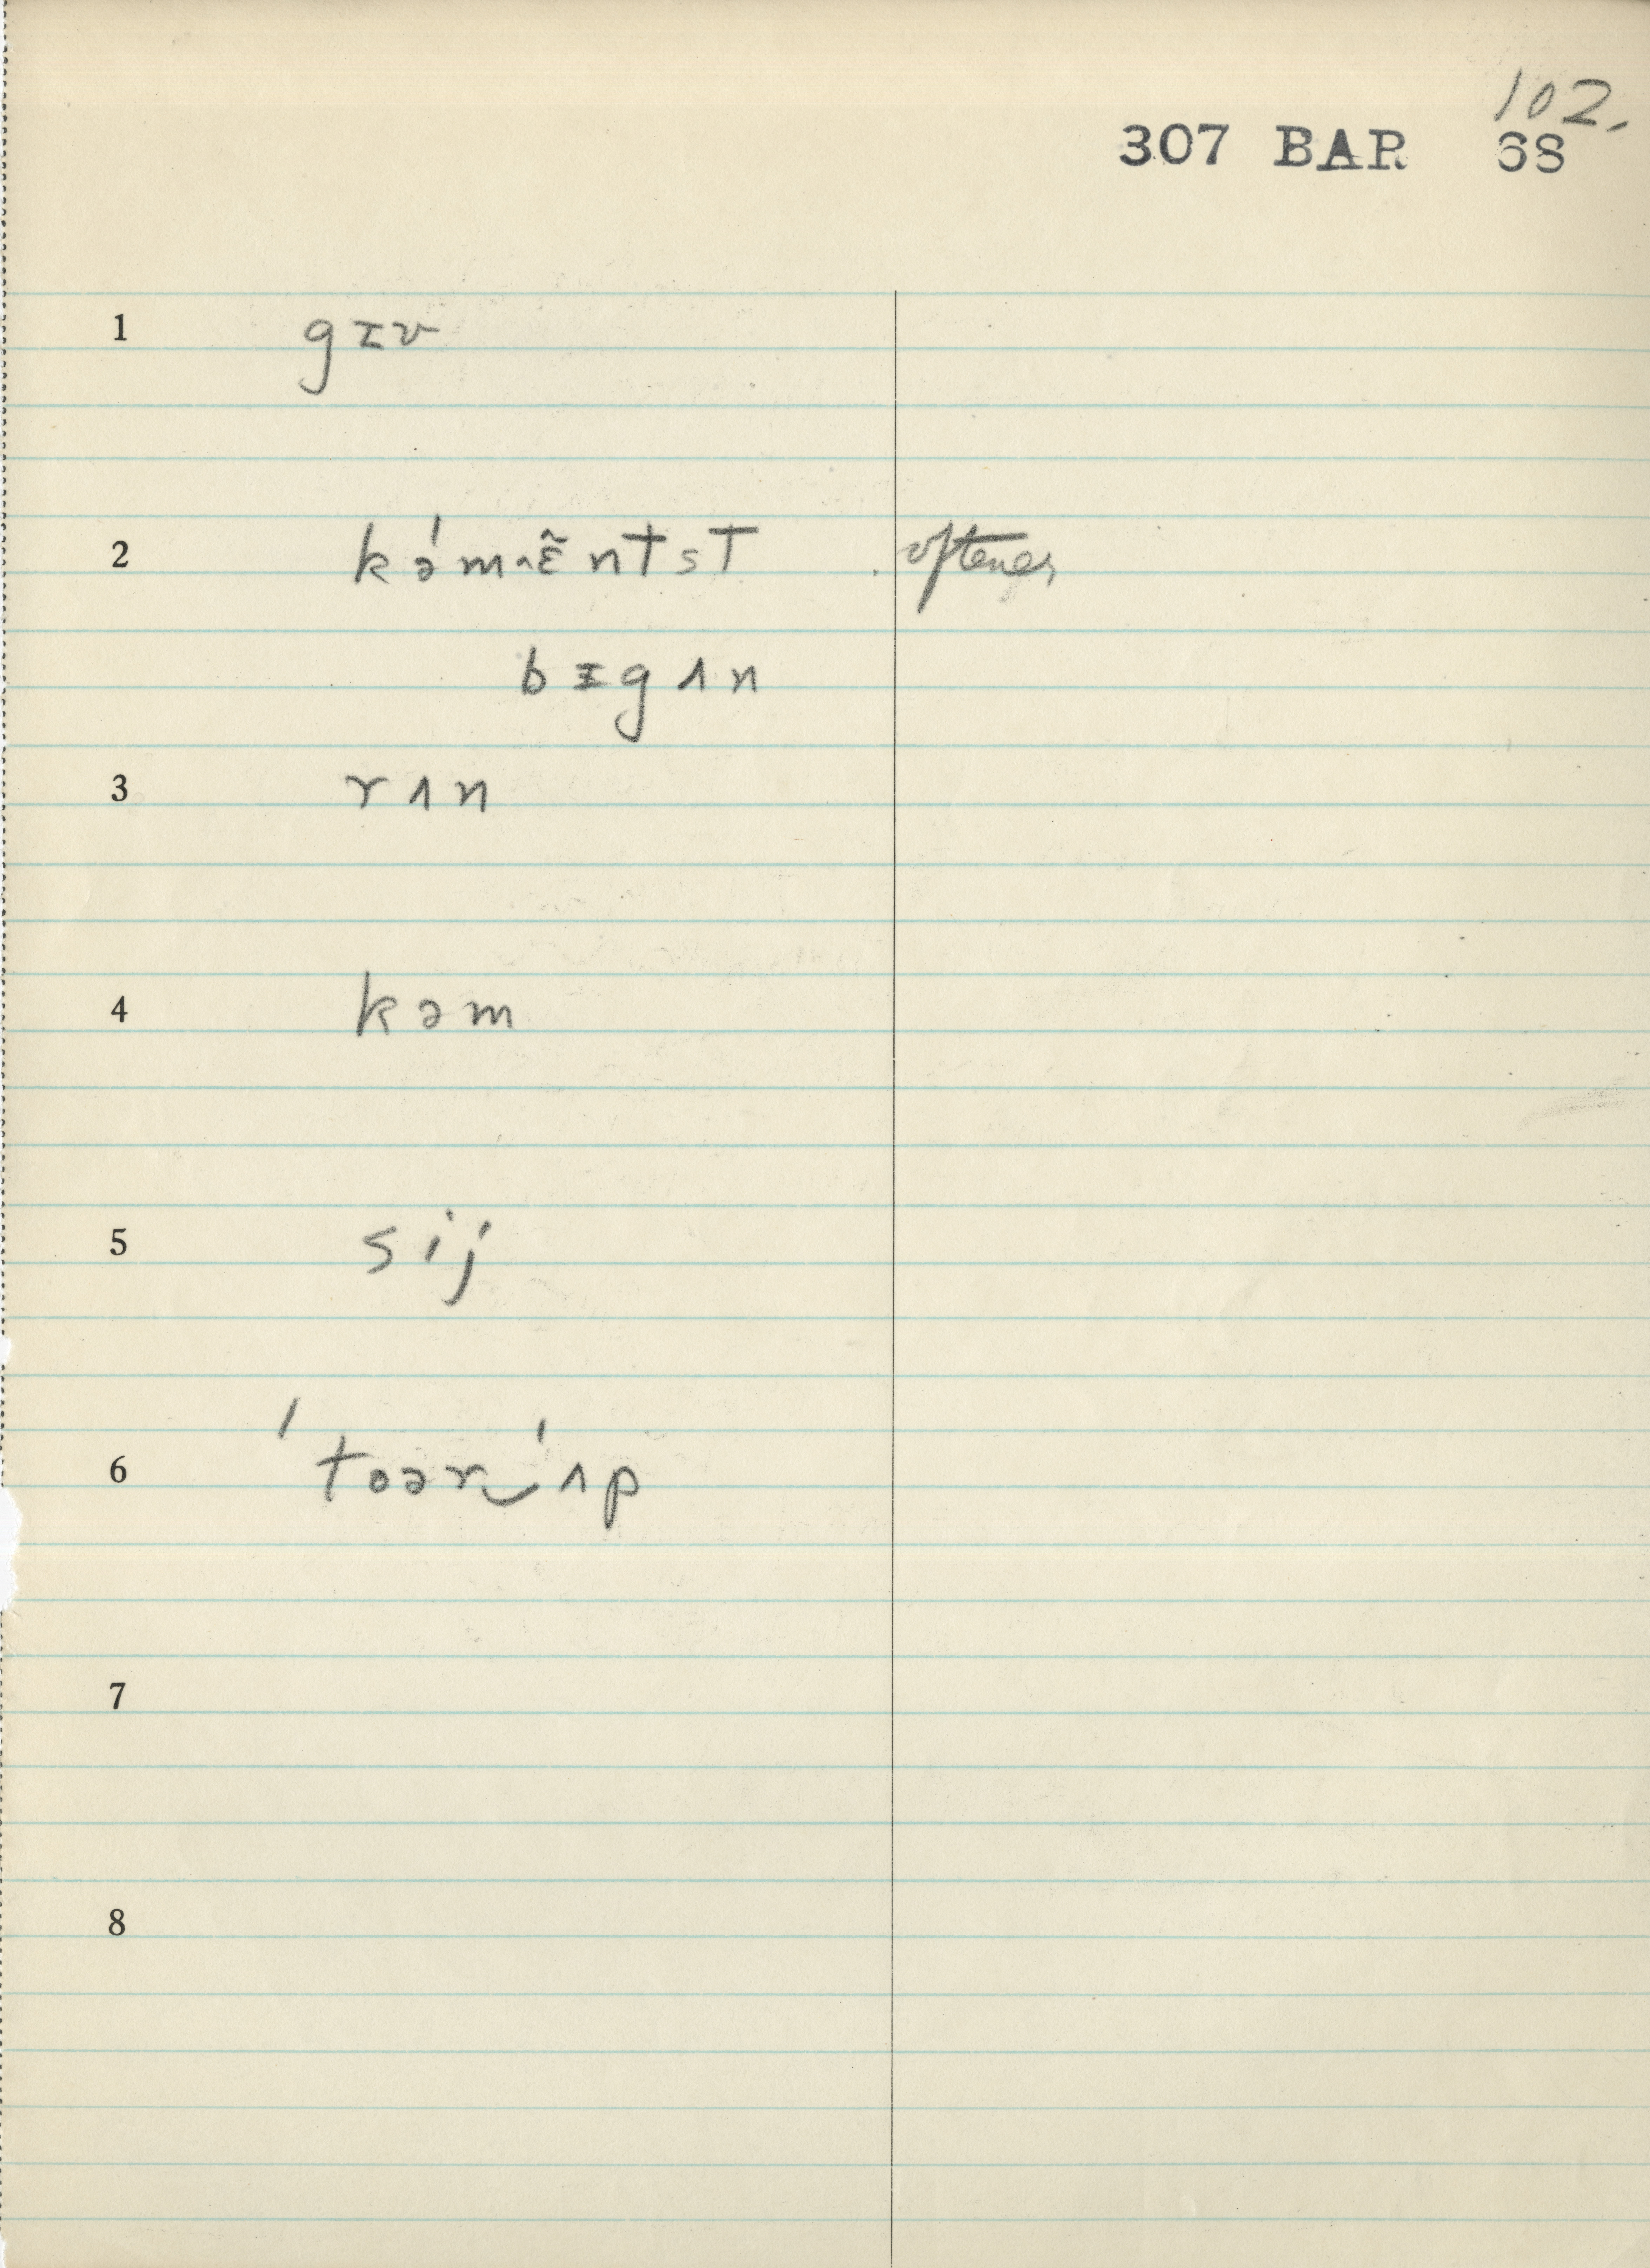 102.
307 BAR 68
1 gɪv
2 kə́mɛ̃ntst oftener
bɪgʌn
3 rʌn
4 kəm
5 sij
6 ˈtoər‿ˈʌp
7
8